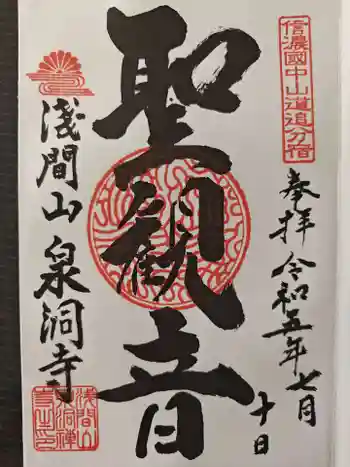 信濃國中山道追分宿
奉拝 令和五年七月
十日
聖観音
淺間山 泉洞寺